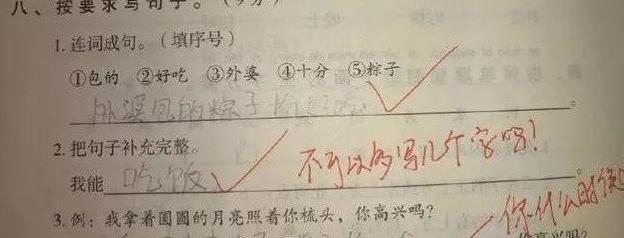 八、按要求写句子。
1. 连词成句。（填序号）
①包的 ②好吃 ③外婆 ④十分 ⑤粽子
外婆包的粽子十分好吃。
2. 把句子补充完整。
不可以多写几个字吗？
我能吃饭。
你什么时候
3. 例：我拿着圆圆的月亮照着你梳头，你高兴吗？